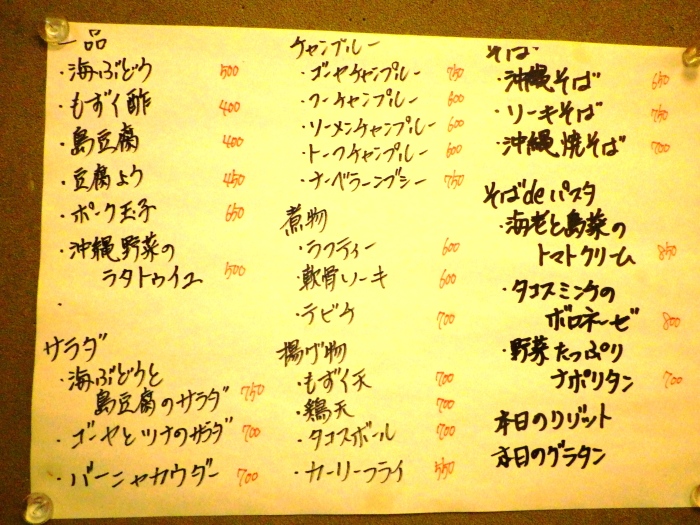 一品
・海ぶどう 500
・もずく酢 400
・島豆腐 400
・豆腐よう 450
・ポーク玉子 650
・沖縄野菜の
ラタトゥイユ 500
・
サラダ
・海ぶどうと
島豆腐のサラダ 750
・ゴーヤとツナのサラダ 700
・バーニャカウダー 700
チャンプルー
・ゴーヤチャンプルー 750
・フーチャンプルー 600
・ソーメンチャンプルー 600
・トーフチャンプルー 600
・ナーベラーンブシー 750
煮物
・ラフティー 600
・軟骨ソーキ 600
・テビチ 700
揚げ物
・もずく天 700
・鶏天 700
・タコスボール 700
・カーリーフライ 550
そば
・沖縄そば 650
・ソーキそば 750
・沖縄焼そば 700
そばdeパスタ
・海老と島菜の
トマトクリーム 850
・タコスミンチの
ボロネーゼ 800
・野菜たっぷり
ナポリタン 700
本日のリゾット
本日のグラタン